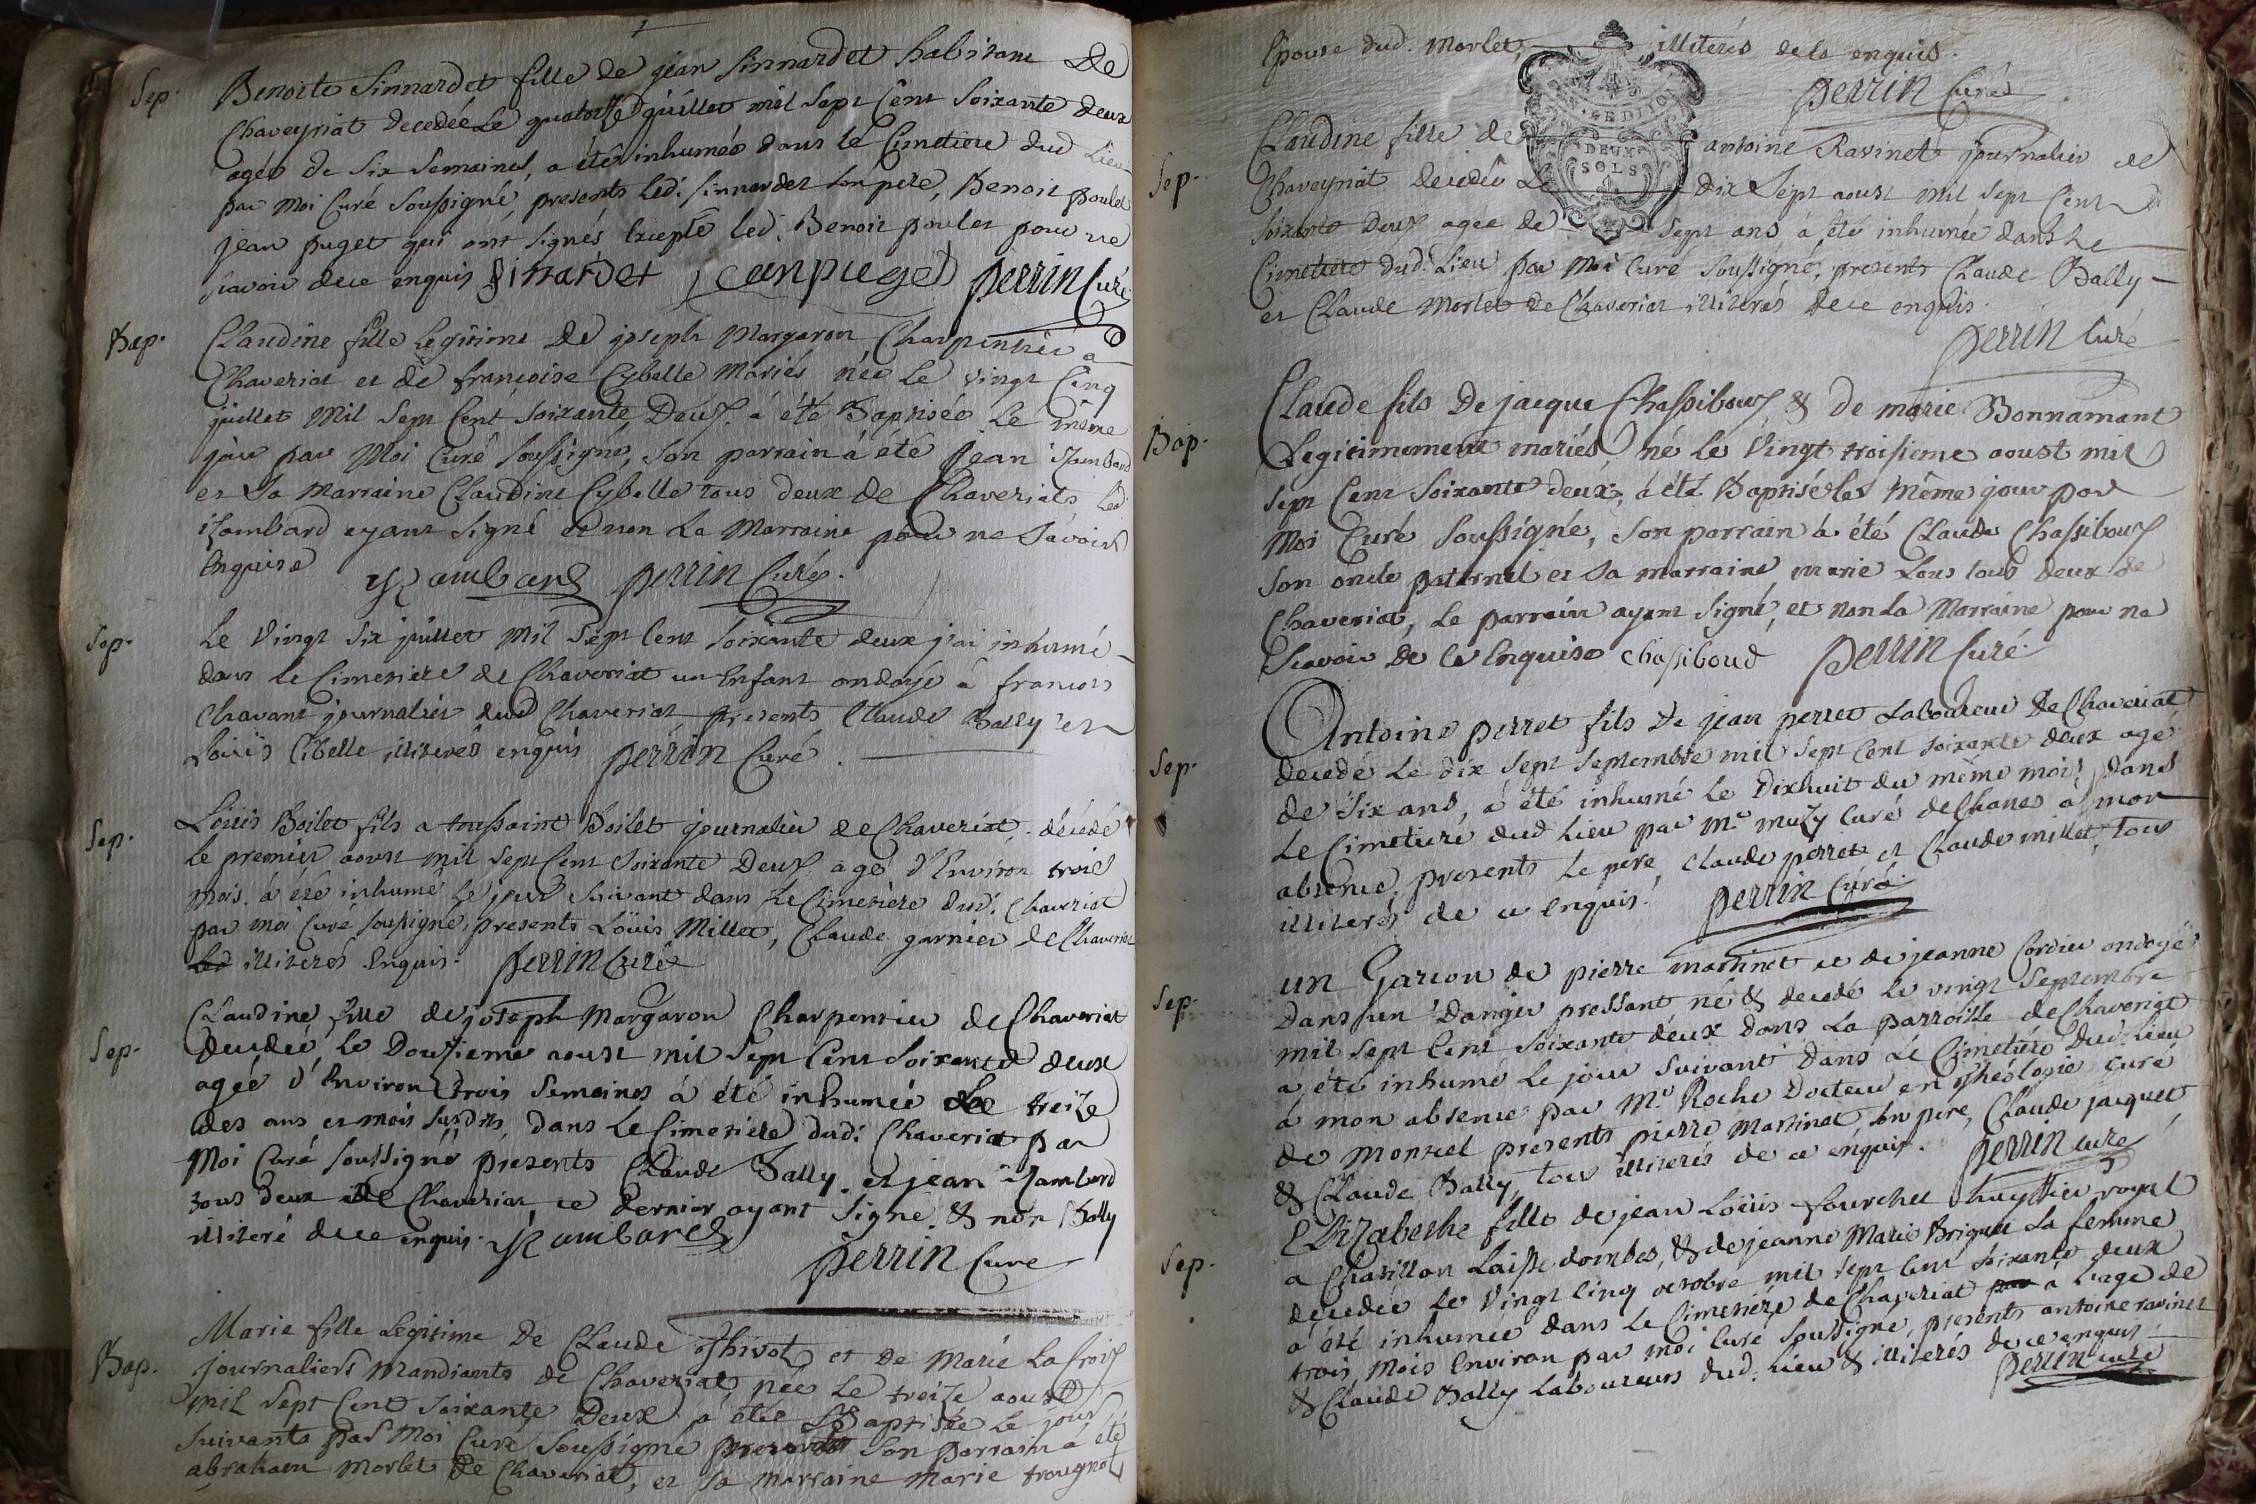 Sep. Benoite Sinnardet fille de jean Sinnardet habitant De
Chaveyriat decedée Le quatorze juillet mil Sept Cent Soixante deux
agée de Six Semaines, a été inhumée dans le Cimetiere dud Lieu
par Moi Curé Soussigné, presents led: Sinnardet son pere, Benoit poulet
jean puget qui ont signés Excepté led. Benoit poulet pour ne
scavoir dece enquis Sinardet jean puget perrin Curé
Bap. Claudine fille Legitime De joseph Margaron Charpentier a
Chaveriat et de francoise Cybelle Mariés née Le vingt Cinq
juillet Mil Sept Cent Soixante Deux à été Baptisée Le même
jour par Moi Curé Soussigné, Son parrain à été Jean Yzambard
et Sa Marraine Claudine Cybelle tous deux de Chaveriats Led:
izambard ayant Signé et non La Marraine pour ne Savoir
Enquise Yzambard perrin Curé.
Sep. Le Vingt Six juillet Mil Sept Cent Soixante deux j'ai inhumé
dans Le Cimetiere de Chaveriat un Enfant ondoyé à francois
Chavant journalier dud Chaveriat, presents Claude Bally et
Loüis Cibelle illiterés enquis perrin Curé.
Sep. Loüis Boilet fils a toussaint Boilet journalier de Chaveriat. décédé
Le premier aoust mil Sept Cent Soixante Deux agé d'Environ trois
mois, à été inhumé Le jour Suivant dans Le Cimetiére dud: Chaveriat
par moi Curé Soussigné, presents Loüis Millet, Claude garnier de Chaveriat
Led illiterés Enquis. perrin Curé
Sep. Claudine fille de joseph Margaron Charpentier de Chaveriat
decedée Le Douzieme aoust mil Sept Cent Soixante deux
agée d'Environ trois Semaines à été inhumée Le treize
des ans et mois Susdits, dans Le Cimetiére dud: Chaveriat par
Moi Curé Soussigné presents Claude Bally, et jean izambard
tous deux de Chaveriat, ce dernier ayant Signé & non Bally
illiteré dece enquis. Yzambard
perrin Cure
Bap. Marie fille Legitime De Claude Thivot et de Marie La Croix
journaliers Mandiants de Chaveriat née Le treize aoust
mil Sept Cent Soixante Deux à été Baptisée Le jour
Suivant par Moi Curé Soussigné presents Son parrain à été
abraham Morlet De Chaveriat, et Sa Marraine Marie trougnot
Epouse dud. Morlet, illiterés dela enquis.
perrin Curé
DEUX
SOLS
Sep. Claudine fille de antoine Ravinet journalier de
Chaveyriat decedée Le dix Sept aoust mil Sept Cent
Soixante Deux agée de Sept ans à été inhumée dans Le
Cimetiere dud: Lieu par Moi Curé Soussigné, presents Claude Bally
et Claude Morlet de Chaveriat illiterés dece enquis.
perrin Curé
Bap. Claude fils De jacque Chassiboux & de marie Bonnamant
Legitimement mariés né Le Vingt troisieme aoust mil
Sept Cent Soixante deux, à été Baptisé le même jour par
Moi Curé Soussigné, Son parrain à été Claude Chassiboux
Son oncle paternel et Sa marraine marie Lous tous deux de
Chaveriat, Le parrain ayant Signé, et non La Marraine pour ne
Scavoir De Ce Enquise Chassiboud perrin Curé.
Sep. Antoine perret fils De jean perret Laboureur De Chaveriat
decedé Le dix Sept Septembre mil Sept Cent Soixante deux agé
de Six ans, à été inhumé Le Dixhuit du même mois, dans
Le Cimetiere dud Lieu par Mr. muzy Curé de Chanes à mon
absence, presents Le pere, Claude perret et Claude millet, tous
illiterés de ce Enquis. perrin Curé.
Sep. un Garcon de pierre martinet et de jeanne Cordier ondoyé
Dans un Danger pressant né & decedé Le vingt Septembre
mil Sept Cent Soixante deux dans La parroisse de Chaveriat
à été inhumé Le jour Suivant dans Le Cimetiére dud: Lieu
à mon absence par Mr. Roche Docteur en Théologie Curé
de Montcel presents pierre Martinet son pere, Claude jacquet
& Claude Bally, tous illiterés de ce enquis. perrin Curé
Sep. Elizabethe fille de jean Loüis fourchet huyssier royal
a Chatillon Laisse dombes, & de jeanne Marie Briquet La femme
decedée Le Vingt Cinq octobre mil Sept Cent Soixante deux
à été inhumée dans Le Cimetiére de Chaveriat par à L'age de
trois Mois Environ par moi Curé Soussigné, presents antoine ravinet
& Claude Bally Laboureurs dud. Lieu & illiterés dece enquis.
perrin Curé